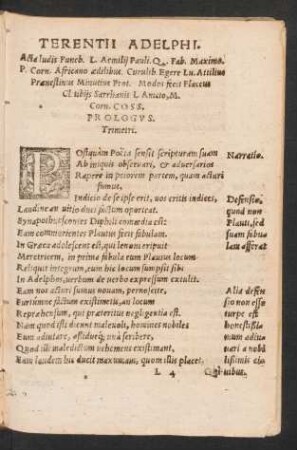 TERENTII ADELPHI.
Acta ludis Funeb. L. Aemilij Pauli. Q. Fab. Maximo.
P. Corn. Africano aedilibus. Curulib. Egere Lu. Attilius
Praenestinus Minutius Prot. Modos fecit Flaccus
Cl. tibijs Sarrhanis L. Anicio, M.
Corn. COSS.
PROLOGVS.
Trimetri.
POstquàm Poëta sensit scripturam suam
Ab iniquis observari, & adversarios
Rapere in peiorem partem, quam acturi
sumus,
Indicio de se ipse erit, vos eritis iudices,
Laudin' an vitio duci factum oporteat.
Synapothnescontes Diphili comoedia est:
Eam commorientes Plautus fecit fabulam.
In Graeca adolescens est, qui lenoni eripuit
Meretricem, in prima fabula eum Plautus locum
Reliquit integrum, eum hic locum sumpsit sibi
In Adelphos, verbum de verbo expressum extulit.
Eam nos acturi sumus novam, pernoscite,
Furtumne factum existimetis, an locum
Reprehensum, qui praeteritus negligentia est.
Nam quod isti dicunt malevoli, homines nobiles
Eum adiutare, assidueq; unà scribere,
Quod illi maledictum vehemens existimant,
Eam laudem hic ducit maxumam, quom illis placet,
Narratio.
Defensio,
quod non
Plauti, sed
suam fabu
lam afferat
Alia defen
sio non esse
turpe est
honestissi
num adiu
nari a nobi
lissimis cio
L 4 Qui